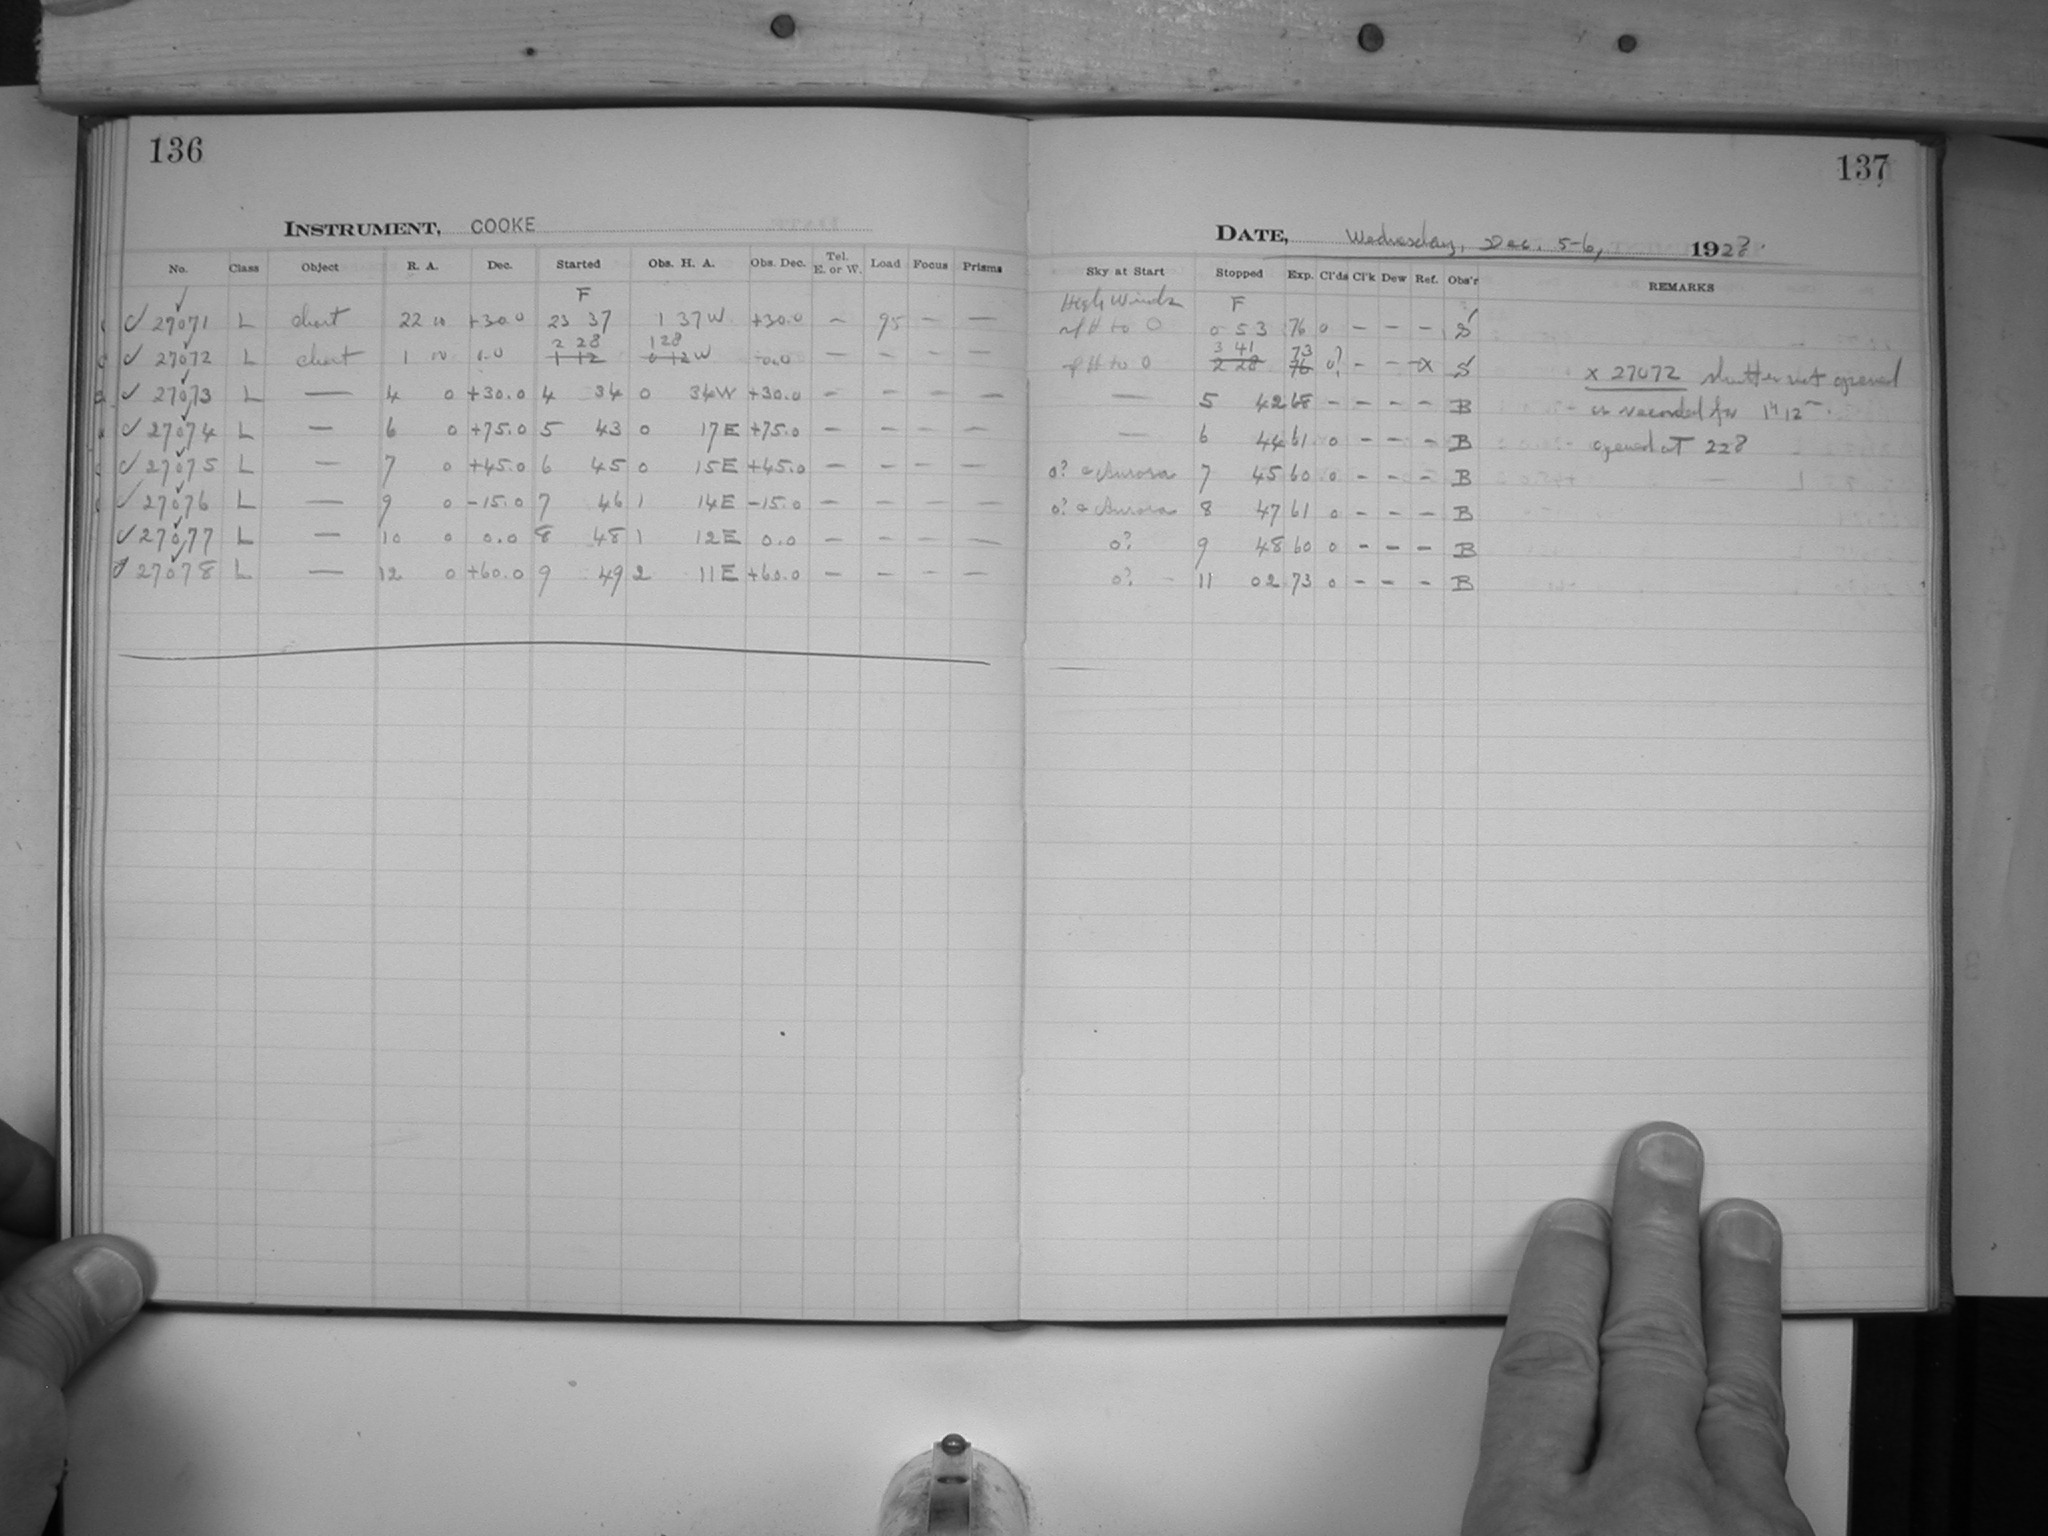 136
INSTRUMENT, COOKE
No. Class Object R. A. Dec. Started Obs. H. A. Obs. Dec. Tel. E. or W. Load Focus Prisms
F
27071 L chart 22 +30.0 23 37 1 37W +30.0 - 95 - -
2 28 1 28
27072 L chart 1 0.0 1 12 0 12W 0.0 - - - -
27073 L — 4 0 +30.0 4 34 0 34W +30.0 - - - -
27074 L — 6 0 +75.0 5 43 0 17E +75.0 - - - -
27075 L — 7 0 +45.0 6 45 0 15E +45.0 - - - -
27076 L — 9 0 -15.0 7 46 1 14E -15.0 - - - -
27077 L — 10 0 0.0 8 48 1 12E 0.0 - - - -
27078 L — 12 0 +60.0 9 49 2 11E +60.0 - - - -
137
DATE, Wednesday, Dec. 5-6, 1928.
Sky at Start Stopped Exp. Cl'ds Cl'k Dew Ref. Obs'r REMARKS
High Winds F
to 0 0 53 76 0 - - - S
3 41 73
to 0 2 28 76 0? - - -X S x 27072 shutter not opened
— 5 42 68 - - - - B as recorded for 1h 12m.
— 6 44 61 0 - - - B opened at 228
0? Aurora 7 45 60 0 - - - B
0? Aurora 8 47 61 0 - - - B
0? 9 48 60 0 - - - B
0? 11 02 73 0 - - - B